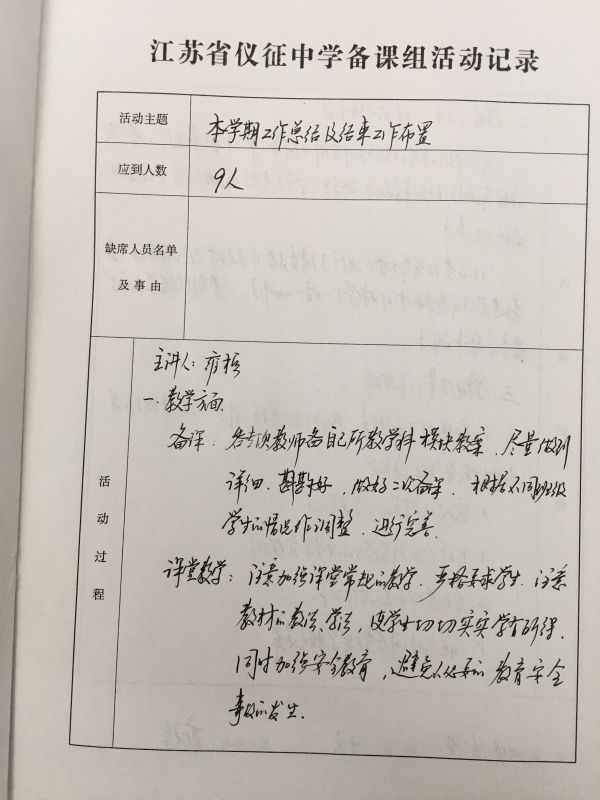 江苏省仪征中学备课组活动记录
活动主题 本学期工作总结及结束工作布置
应到人数 9人
缺席人员名单
及事由
活动过程
主讲人:
一.教学方面
备课:各专项教师备自己所教学科模块教案,尽量做到
详细,做好二次备课.根据不同班级
学生的情况作调整,进行完善.
课堂教学:注意加强课堂常规的教学,严格要求学生.注意
教材的教法、学法,使学生切切实实学有所得.
同时加强安全教育,避免不必要的教育安全
事故的发生.